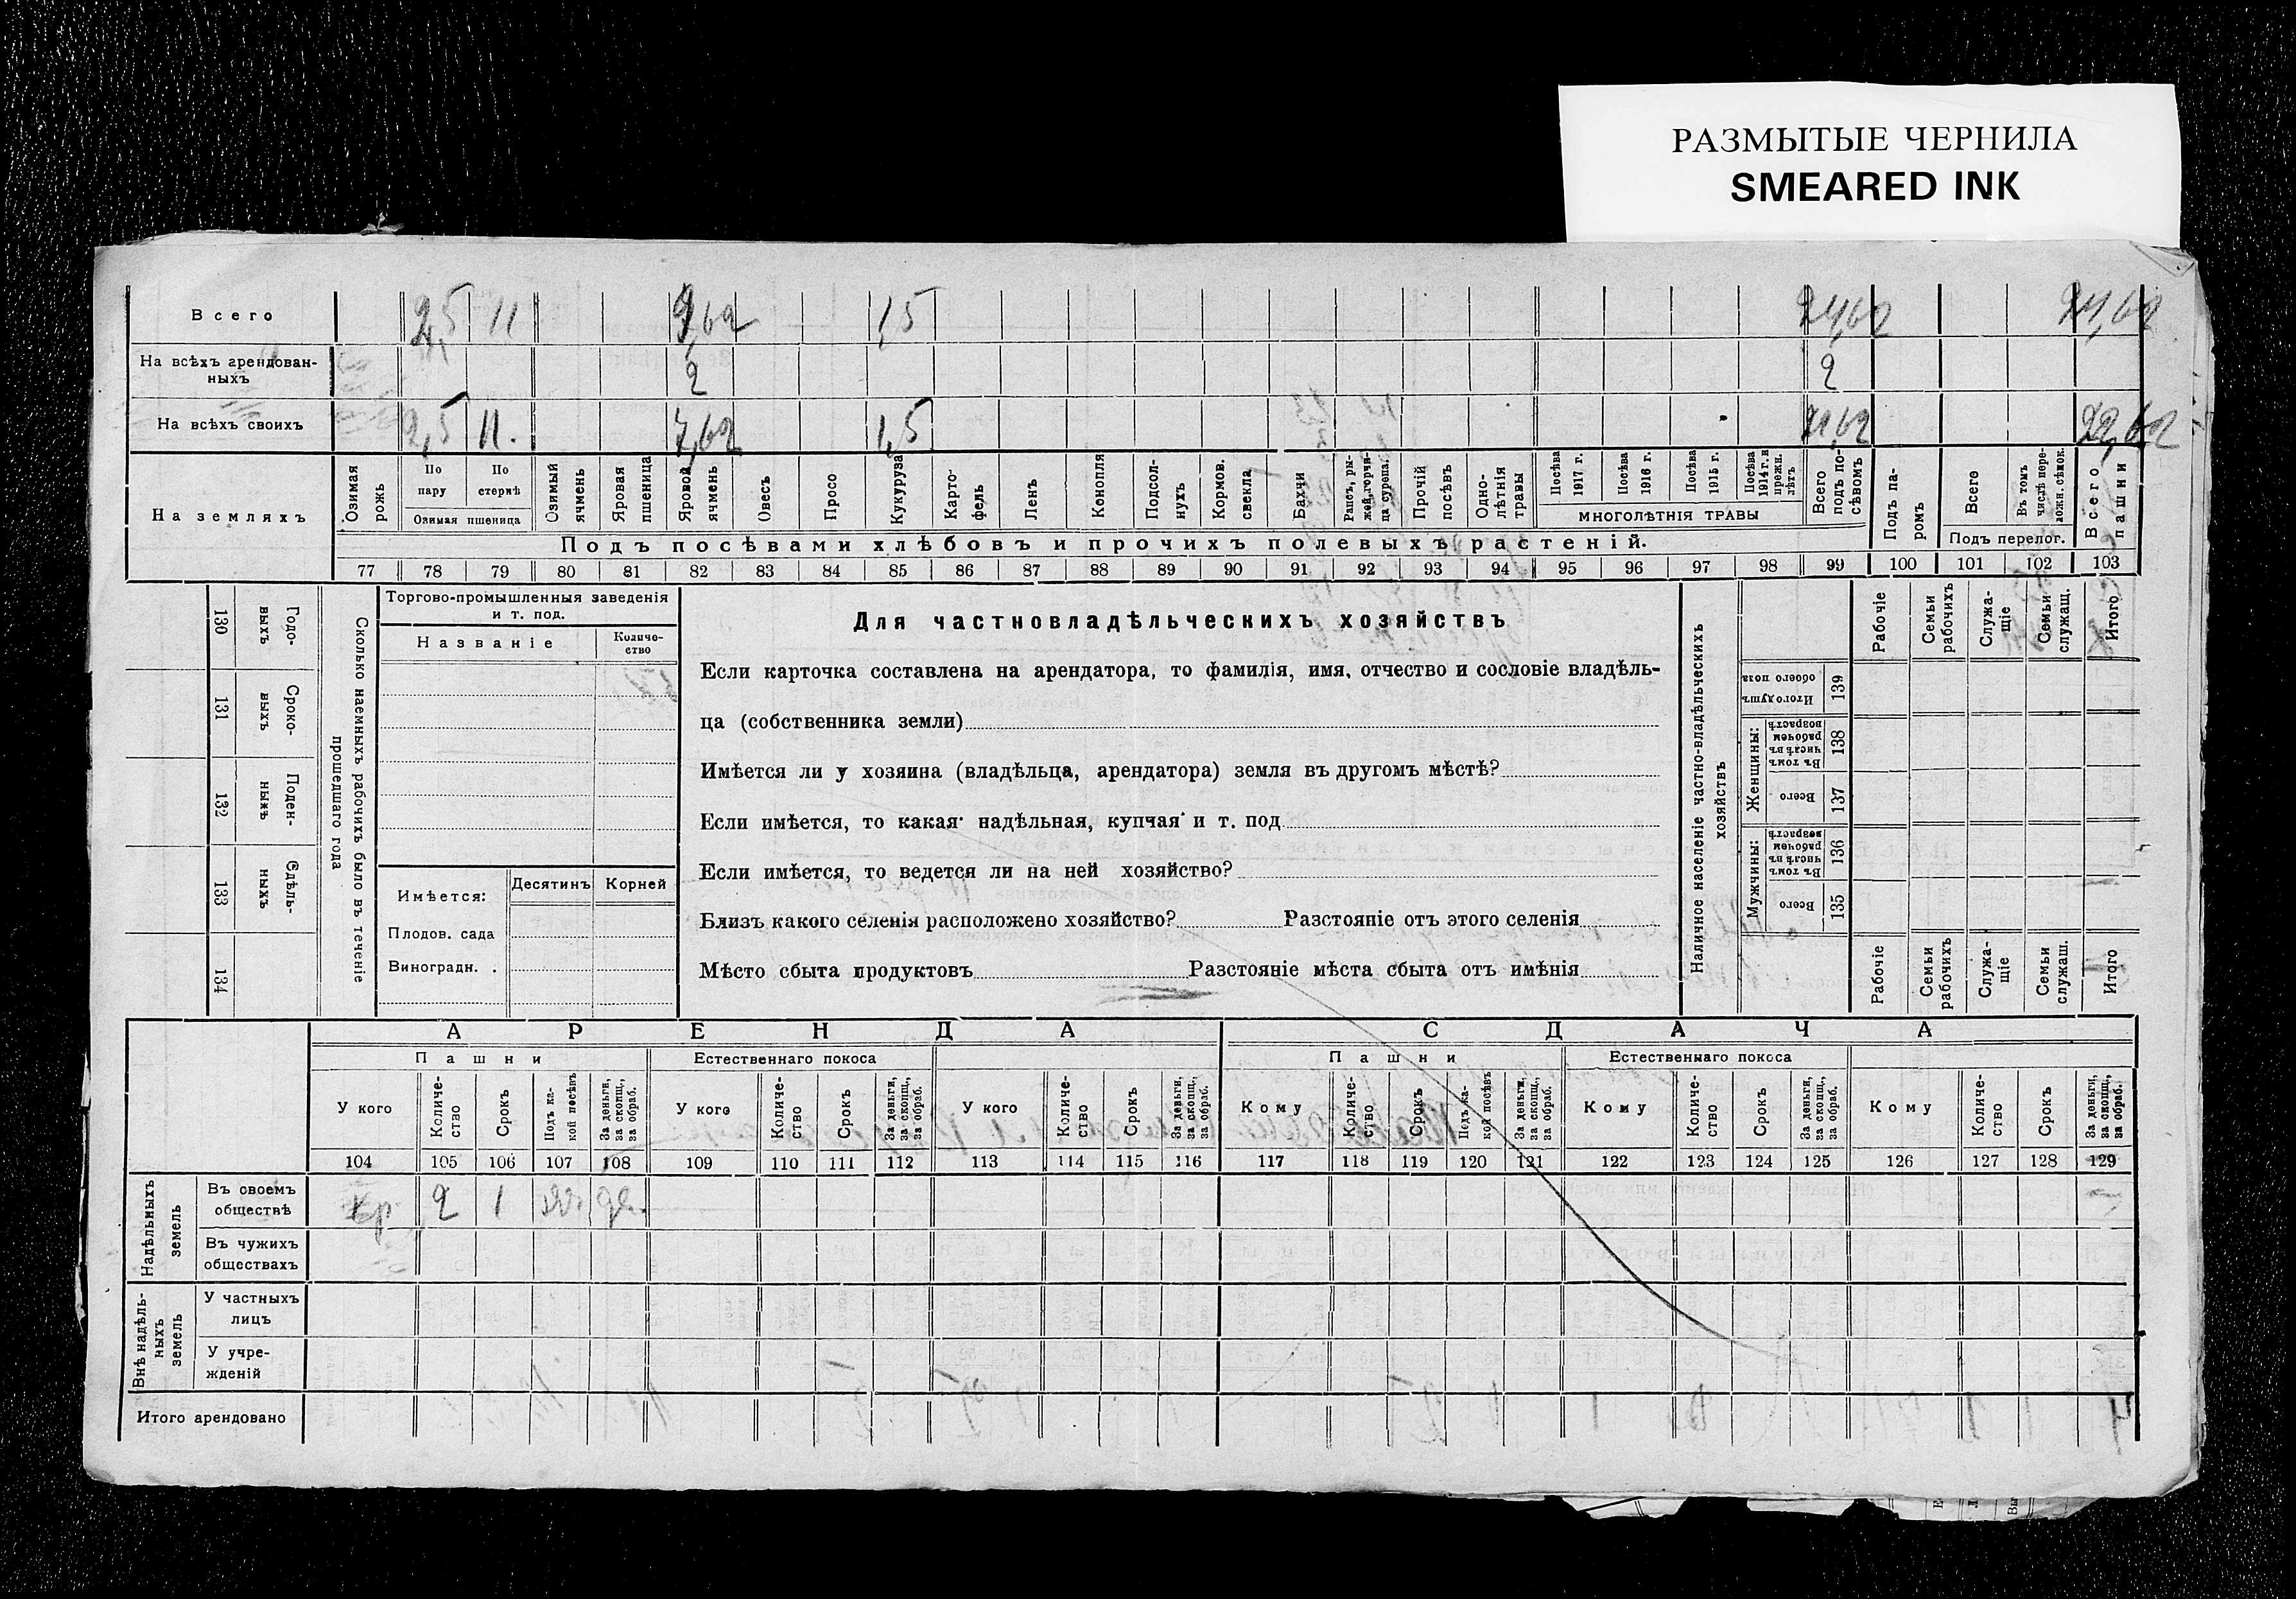 РАЗМЫТЫЕ ЧЕРНИЛА
SMEARED INK
Всего 2,5 11 9,62 1,5 24,62 24,62
На всѣхъ арендован-
ныхъ 2 2
На всѣхъ своихъ 2,5 11. 7,62 1,5 22,62
На земляхъ
Озимая рожь
По пару
По стернѣ
Озимая пшеница
Озимый ячмень
Яровая пшеница
Яровой ячмень
Овесъ
Просо
Кукуруза
Карто-фель
Ленъ
Конопля
Подсол-нухъ
Кормов. свекла
Бахчи
Рапсъ, ры-жей, горчи-ца сурепа.
Прочій посѣвъ
Одно-лѣтнія травы
Посѣва 1917 г.
Посѣва 1916 г.
Посѣва 1915 г.
Посѣва 1914 г. и прежн. лѣтъ
МНОГОЛѢТНІЯ ТРАВЫ
Всего подъ по-сѣвомъ
Подъ па-ромъ
Всего
Въ томъ числѣ пере-ложн. сѣнок.
Подъ перелог.
Всего пашни
Подъ посѣвами хлѣбовъ и прочихъ полевыхъ растеній.
77 78 79 80 81 82 83 84 85 86 87 88 89 90 91 92 93 94 95 96 97 98 99 100 101 102 103
130 Годо-выхъ
131 Сроко-выхъ
132 Поден-ныхъ
133 Сдѣль-ныхъ
134
Сколько наемныхъ рабочихъ было въ теченіе
прошедшаго года
Торгово-промышленныя заведенія
и т. под.
Названіе
Количе-ство
Имѣется:
Десятинъ Корней
Плодов. сада
Виноградн. .
Для частновладѣльческихъ хозяйствъ
Если карточка составлена на арендатора, то фамилія, имя, отчество и сословіе владѣль-
ца (собственника земли)
Имѣется ли у хозяина (владѣльца, арендатора) земля въ другомъ мѣстѣ?
Если имѣется, то какая· надѣльная, купчая и т. под
Если имѣется, то ведется ли на ней хозяйство?
Близъ какого селенія расположено хозяйство? Разстояніе отъ этого селенія
Мѣсто сбыта продуктовъ Разстояніе мѣста сбыта отъ имѣнія
Наличное населеніе частно-владѣльческихъ
хозяйствъ
Рабочіе
Семьи рабочихъ
Служа-щіе
Семьи служащ.
Итого
Итого душъ обоего пола 139
Женщины:
Въ томъ числѣ въ рабочемъ возрастѣ 138
Всего 137
Мужчины:
Въ томъ числѣ въ рабочемъ возрастѣ 136
Всего 135
Рабочіе
Семьи рабочихъ
Служа-щіе
Семьи служащ.
Итого
АРЕНДА
СДАЧА
Пашни
Естественнаго покоса
Пашни
Естественнаго покоса
У кого
Количе-ство
Срокъ
Подъ ка-кой посѣвъ
За деньги, за скопщ., за обраб.
У кого
Количе-ство
Срокъ
За деньги, за скопщ., за обраб.
У кого
Количе-ство
Срокъ
За деньги, за скопщ., за обраб.
Кому
Количе-ство
Срокъ
Подъ ка-кой посѣвъ
За деньги, за скопщ., за обраб.
Кому
Количе-ство
Срокъ
За деньги, за скопщ., за обраб.
Кому
Количе-ство
Срокъ
За деньги, за скопщ., за обраб.
104 105 106 107 108 109 110 111 112 113 114 115 116 117 118 119 120 121 122 123 124 125 126 127 128 129
Надѣльныхъ земель
Въ своемъ
обществѣ кр. 2 1
Въ чужихъ
обществахъ
Внѣ надѣль-ныхъ земель
У частныхъ
лицъ
У учре-
жденій
Итого арендовано